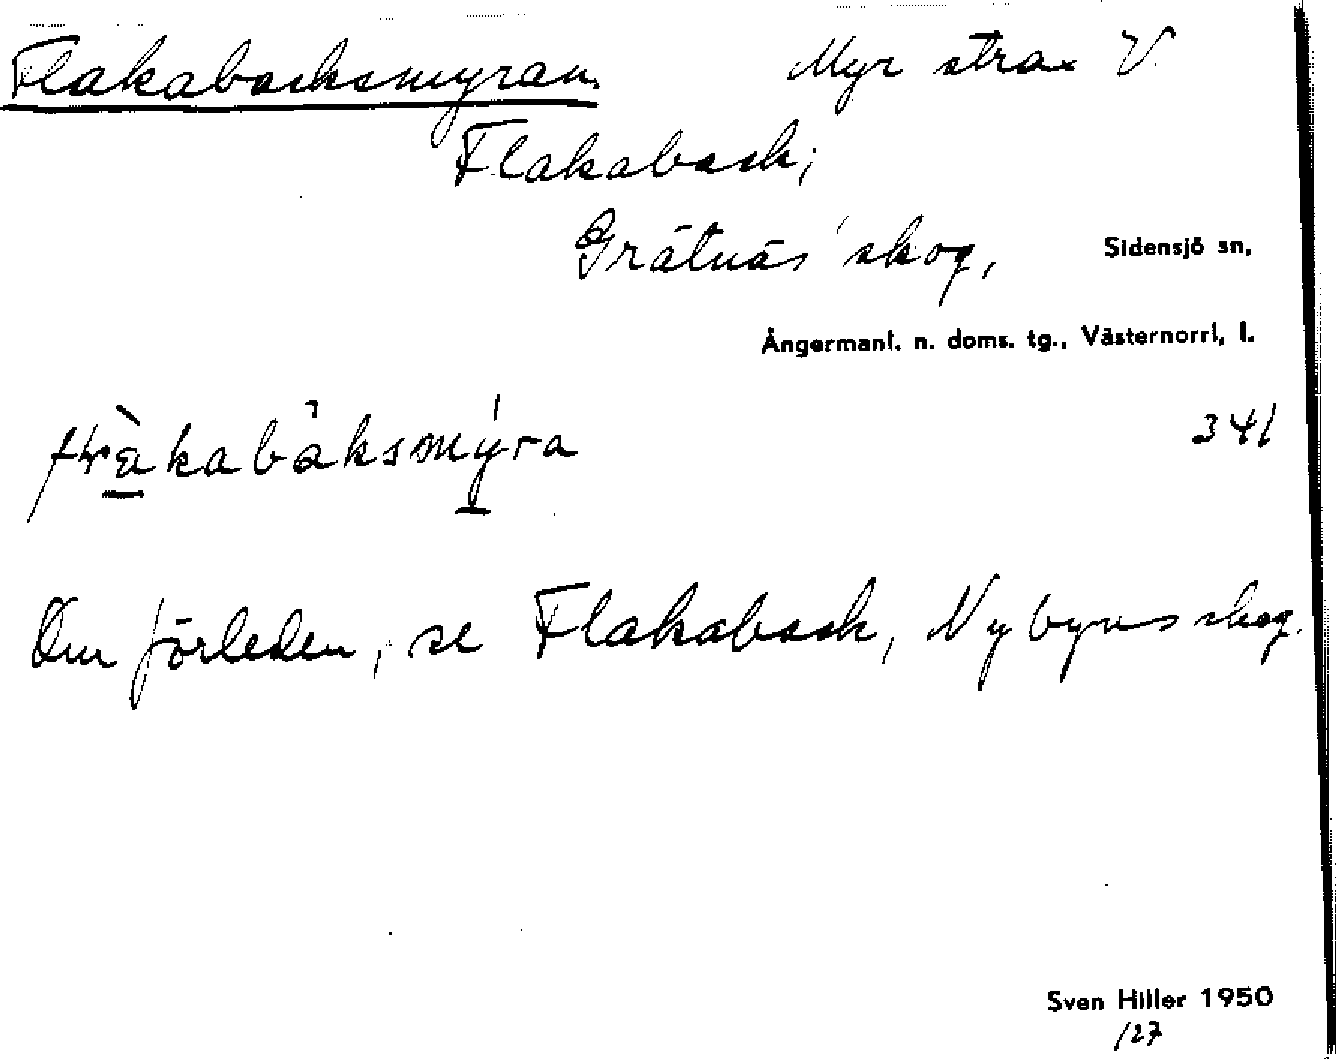 Flakabacksmyran. Myr strax V.
Flakaback;
Grätnäs' skog, Sidensjö sn,
Ångermanl. n. doms. tg., Västernorrl. l.
341
Om förleden, se Flakaback, Nybyns skog.
Sven Hiller 1950
/27